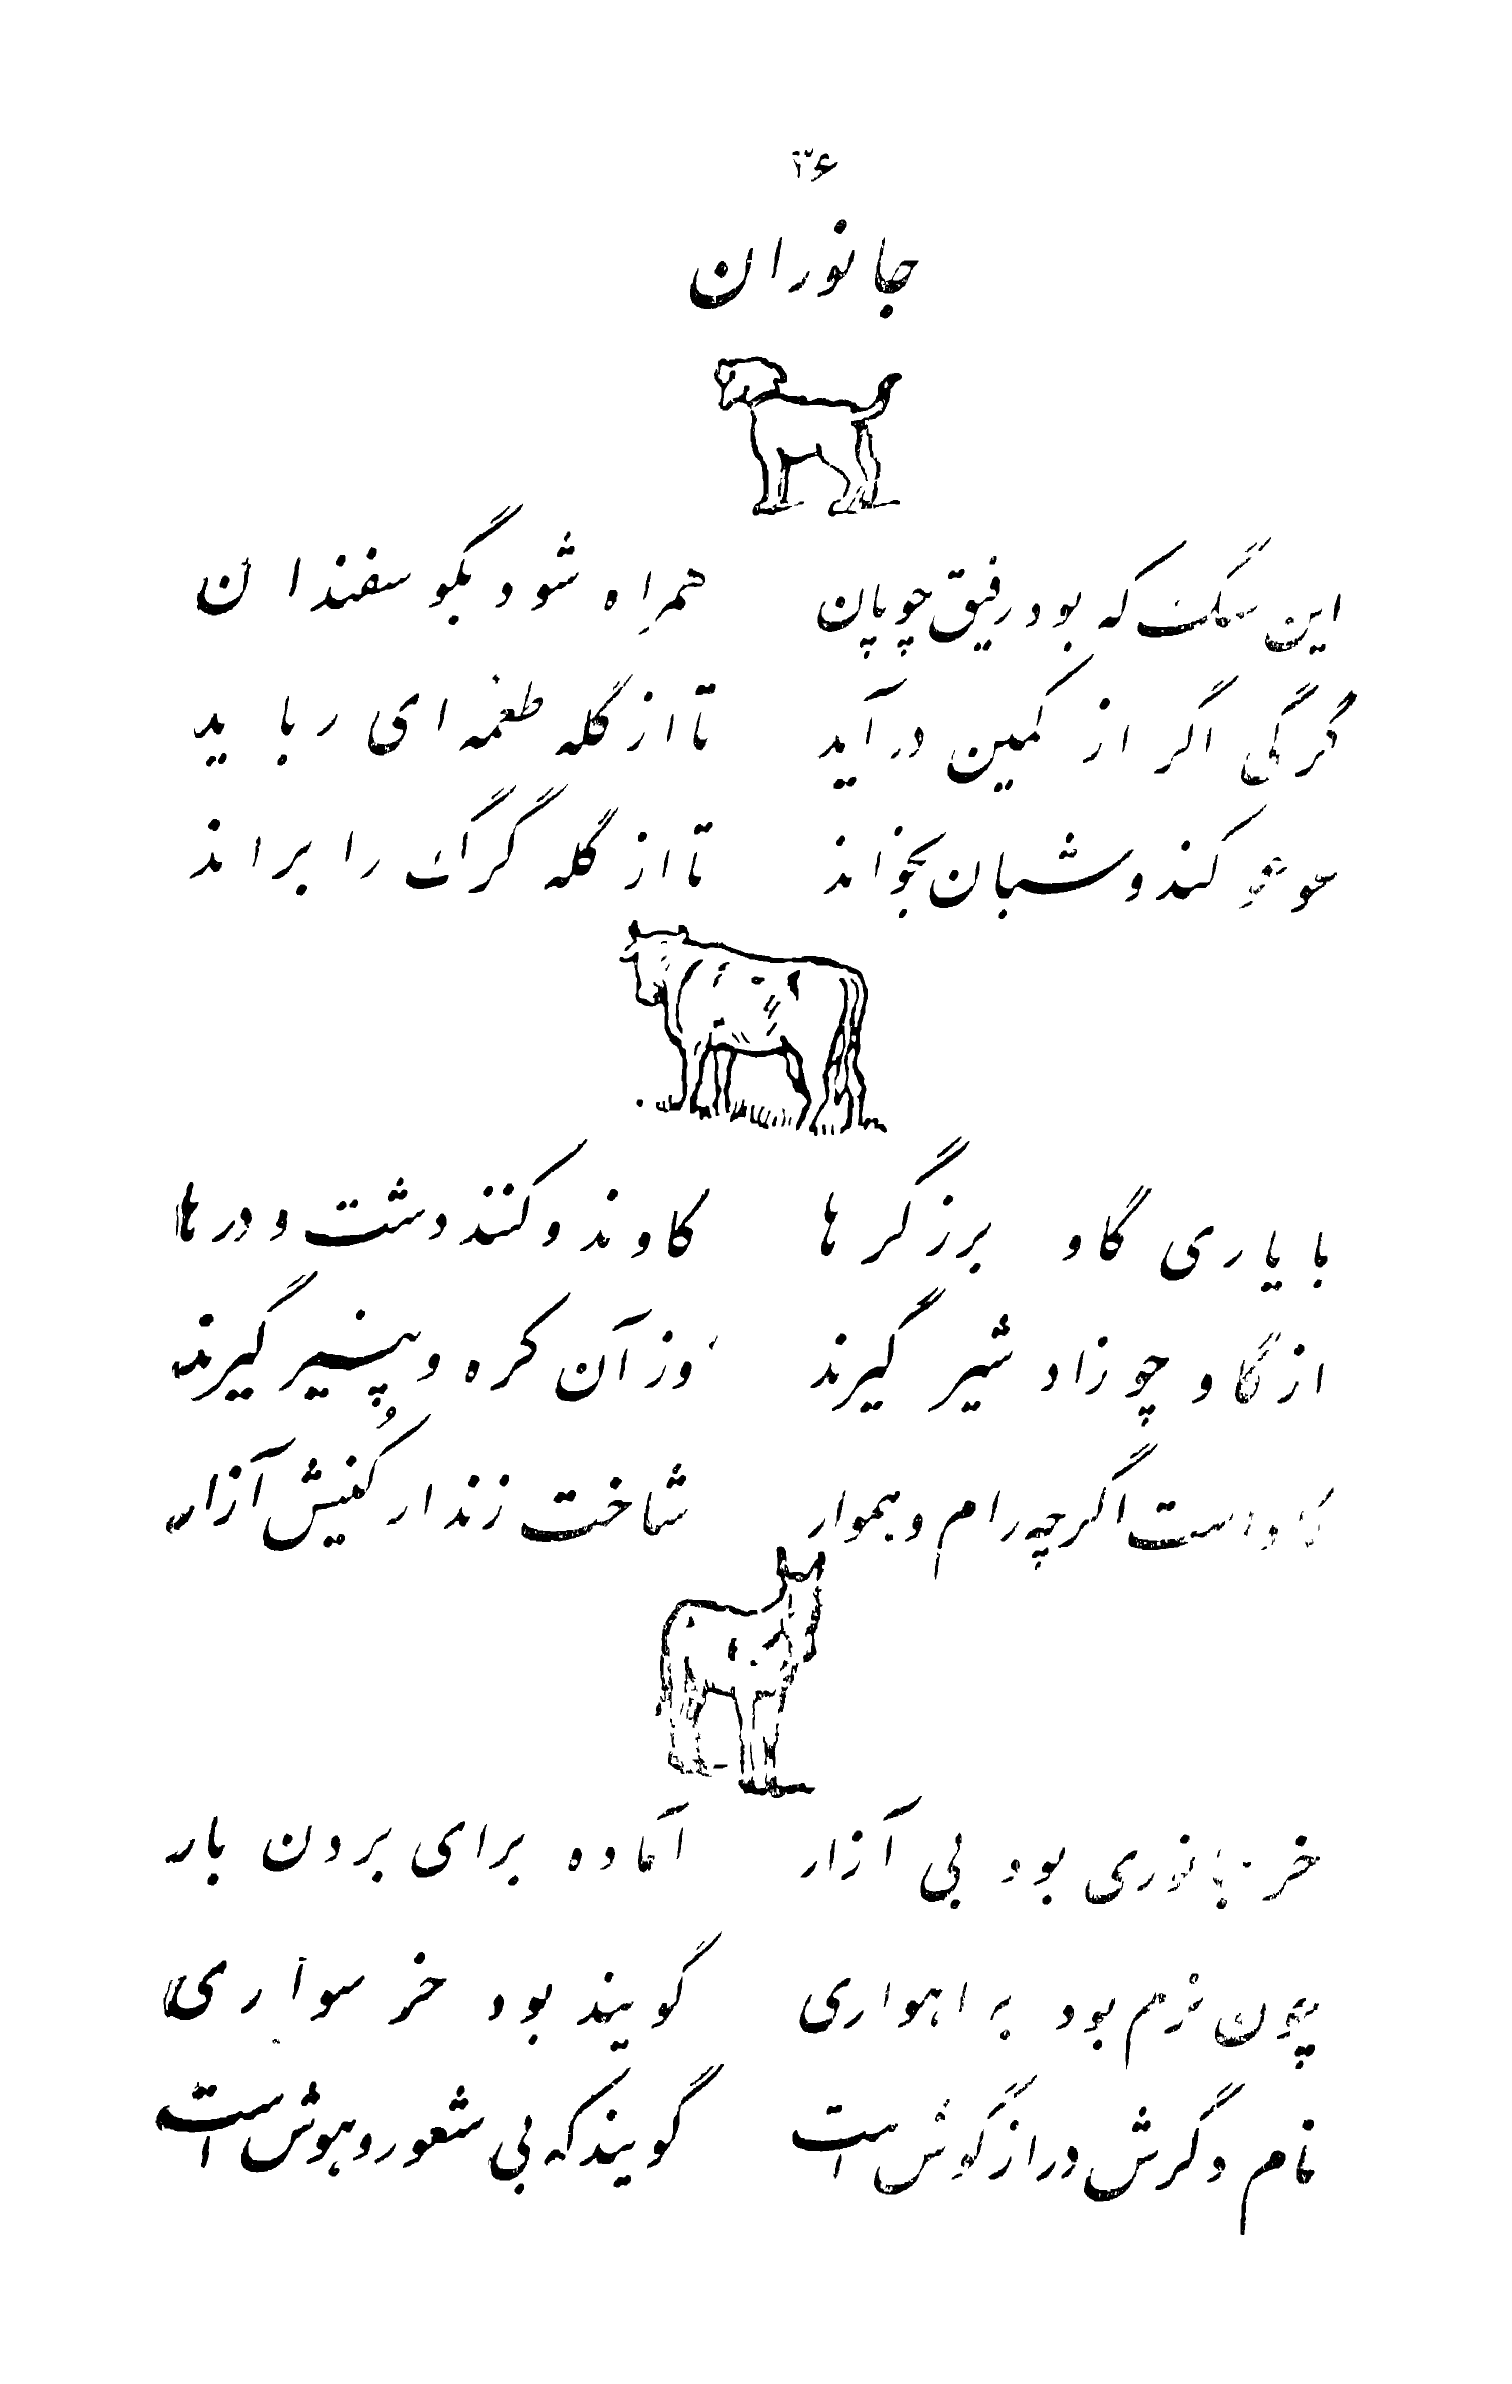 ۳۶
جانوران
این سگ که بود رفیق چوپان همراه شود بگوسفندان
گرگی اگر از کمین درآید تا از گله طعمه ای رباید
عوعو کند و شبان بخواند تا از گله گرگ را براند
با یاری گاو برزگرها کاوند و کنند دشت و درها
از گاو چو زاد شیر گیرند وز آن کره و پنیر گیرند
گاو است اگرچه رام و هموار شاخت زند ار کُنیش آزار
خر جانوری بود بی آزار آماده برای بردن بار
چون نرم بود به راهواری گویند بود خر سواری
نام دگرش درازگوش است گویند که بی شعور و هوش است